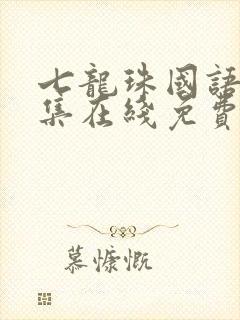 七龍珠國語
集在綫免費
慕慷慨